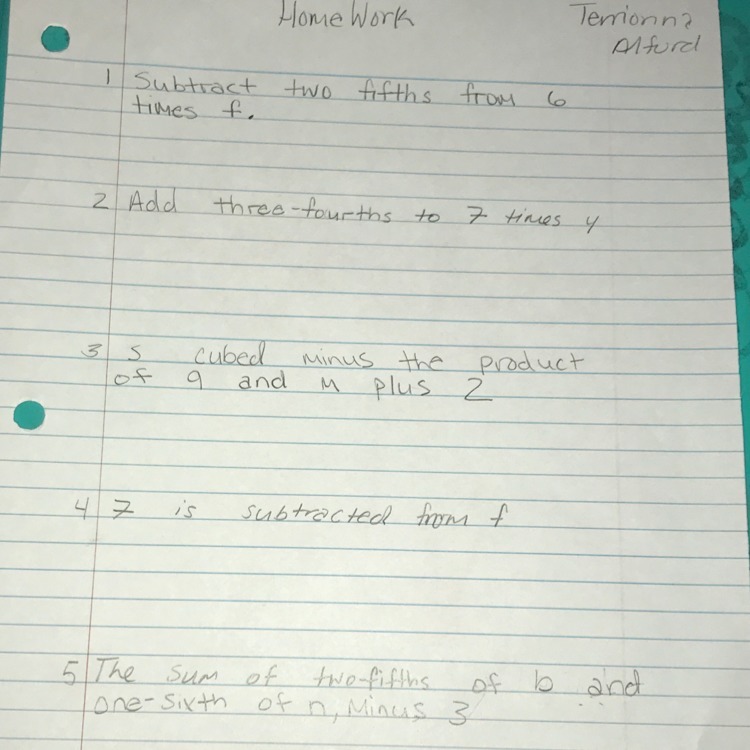 HomeWork
Terrionna
Alford
1 Subtract two fifths from 6
times f.
2 Add three-fourths to 7 times y
3 s cubed minus the product
of 9 and m plus 2
4 7 is subtracted from f
5 The sum of two-fifths of b and
one-sixth of n, minus 3